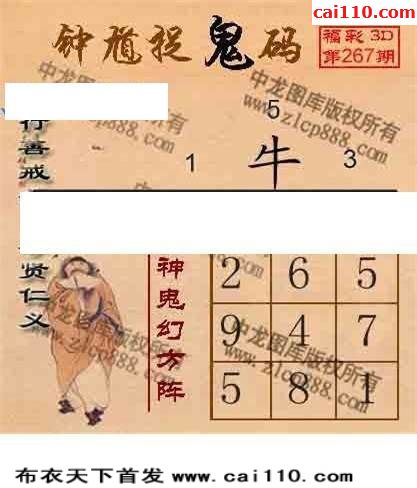 cai110.com
钟馗捉鬼码
福彩 3D
第267期
中龙图库版权所有
www.zlcp888.com
5
1 牛 3
行善戒
贤仁义
神鬼幻方阵
2 6 5
9 4 7
5 8 1
中龙图库版权所有
www.zlcp888.com
布衣天下首发 www.cai110.com